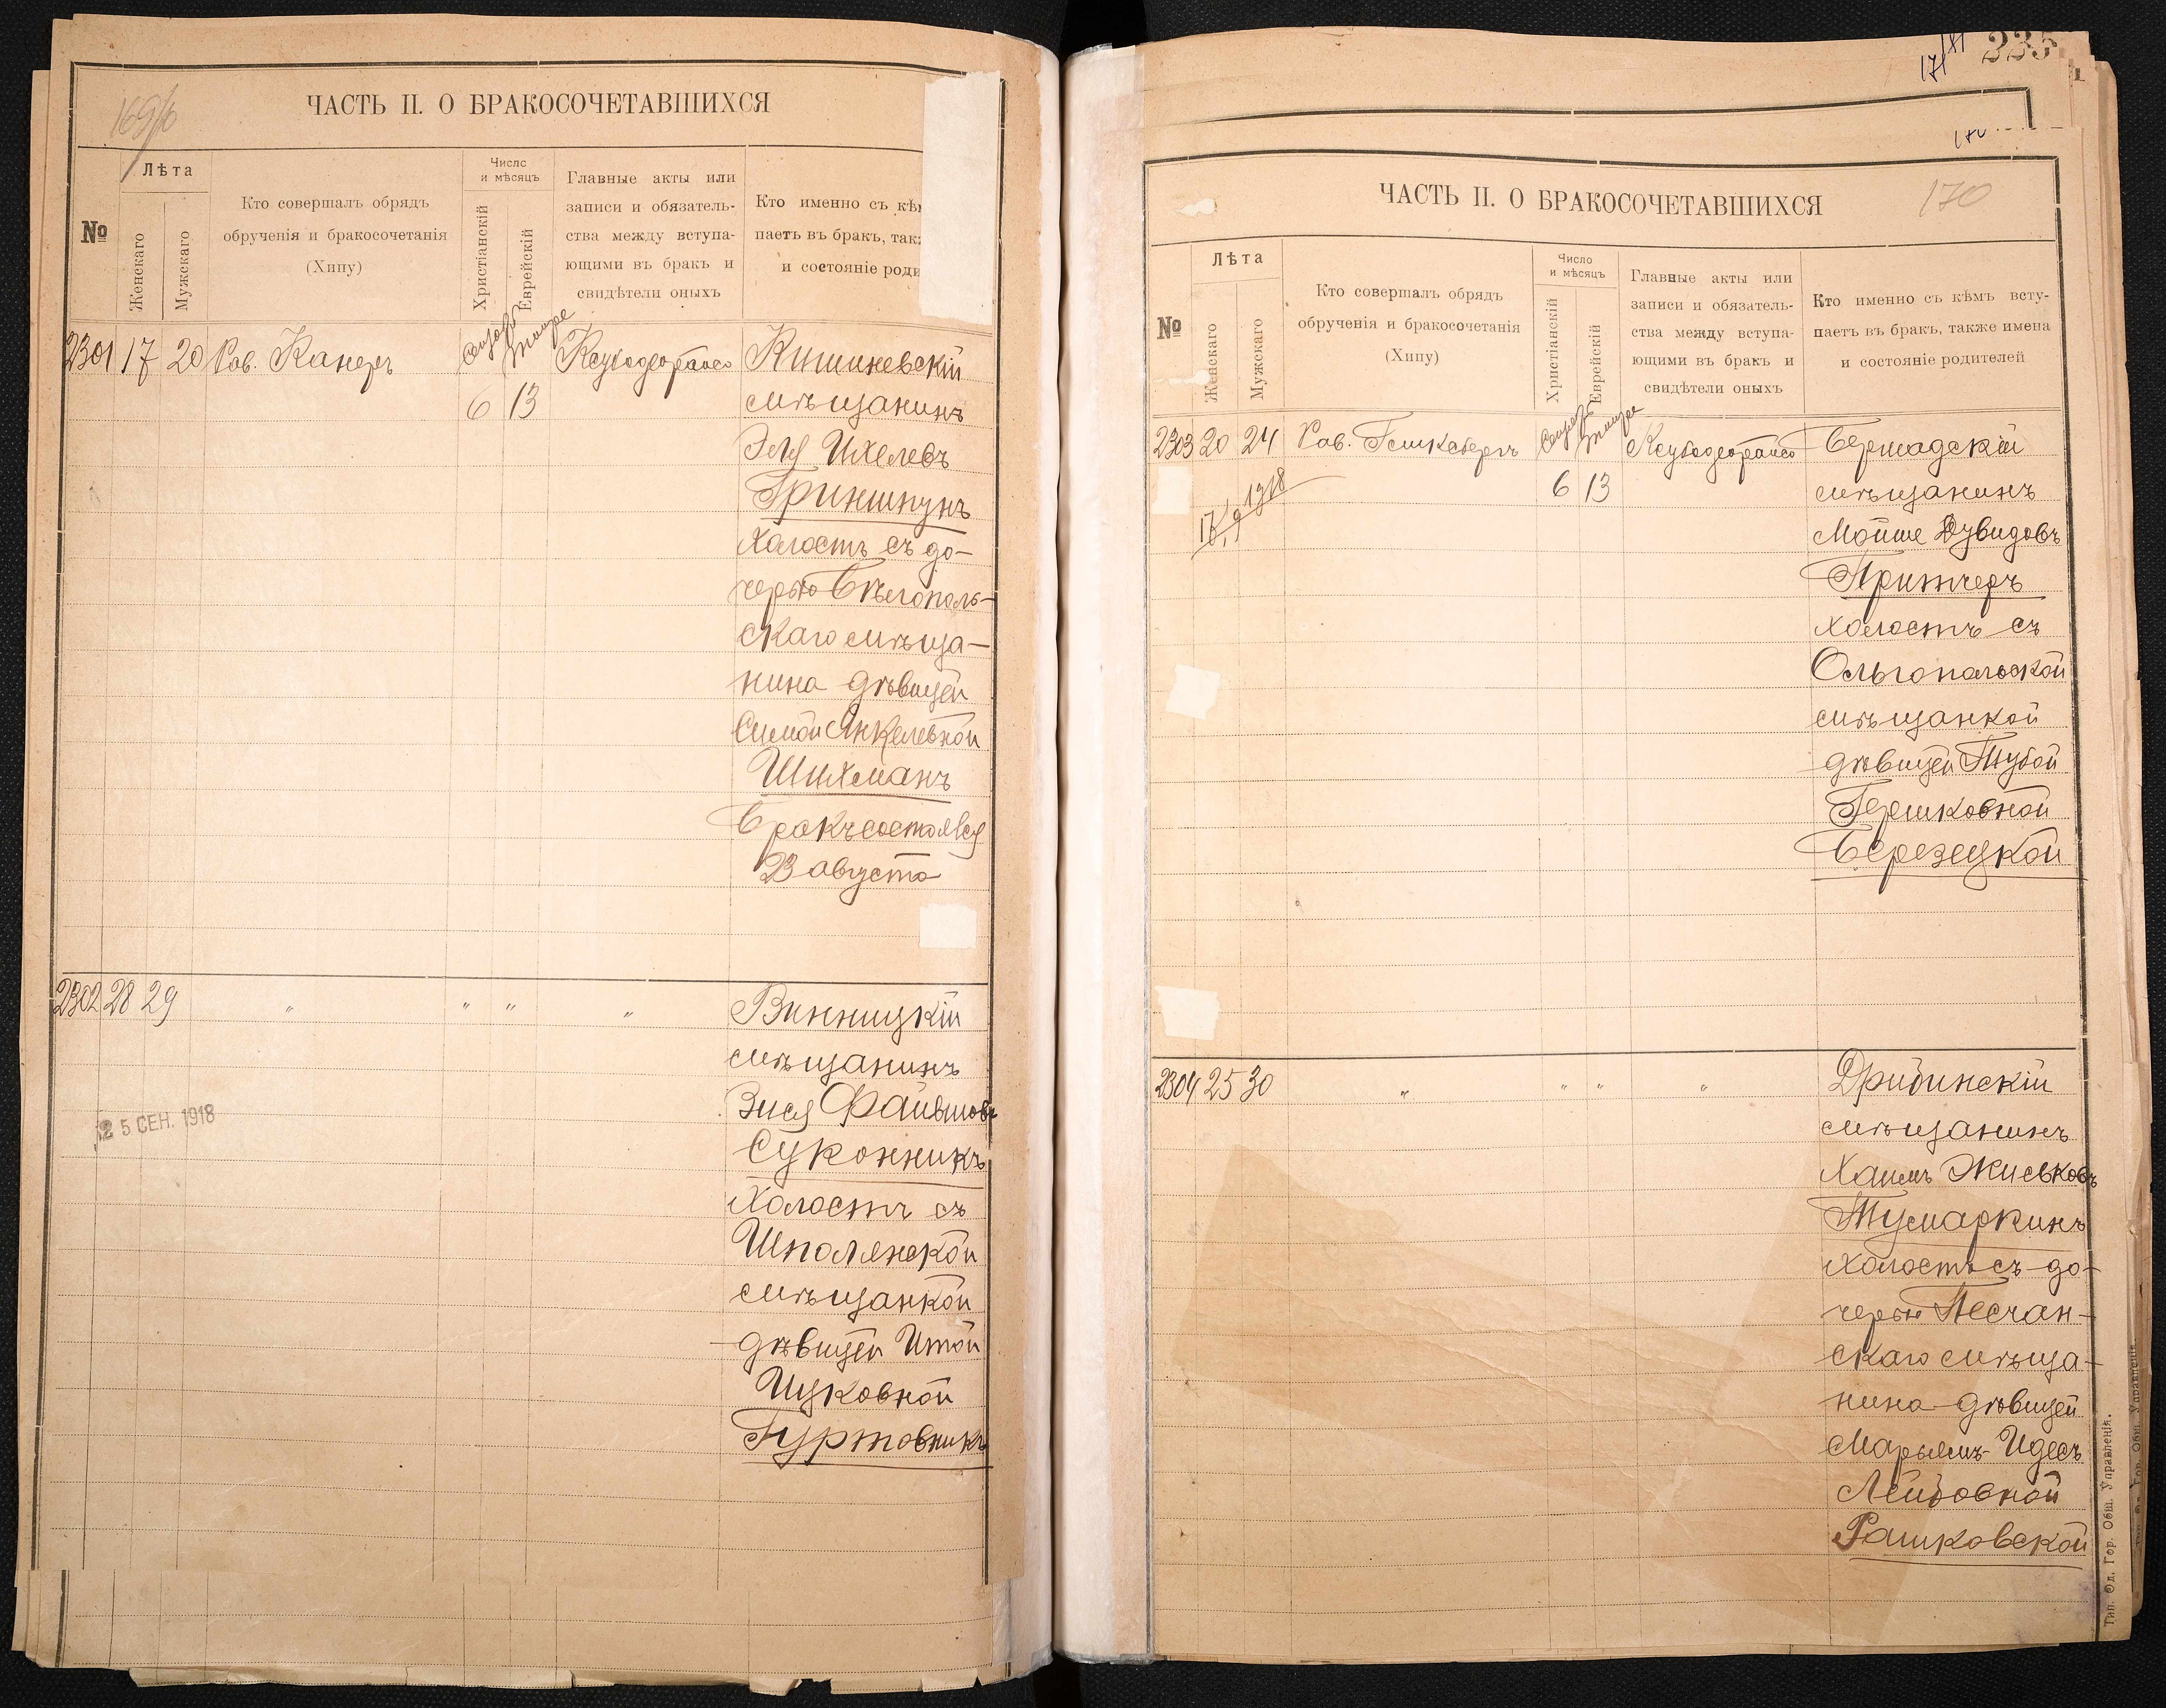 169/б
ЧАСТЬ II. О БРАКОСОЧЕТАВШИХСЯ
№
Лѣта
Женскаго
Мужскаго
Кто совершалъ обрядъ
обрученія и бракосочетанія
(Хипу)
Число
и мѣсяцъ
Христіанскій
Еврейскій
Главные акты или
записи и обязатель-
ства между вступа-
ющими въ бракъ и
свидѣтели оныхъ
Кто именно съ кѣм
паетъ въ бракъ, так
и состояніе роди
2301 17 20 Рав. Канеръ
6 13
Кишиневскій
мѣщанинъ
Эля Ихелевъ
Гриншпунъ
холостъ съ до-
черью Бѣлополь-
скаго мѣща-
нина дѣвицей
Симой Янкелевной
Шихманъ
Бракъ состоялся
23 августа
2302 28 29 " " " "
Винницкій
мѣщанинъ
Зися Файвишовъ
Суконникъ
холостъ съ
Шполянской
мѣщанкой
дѣвицей Итой
Ицковной
Гуртовникъ
25 СЕН. 1918
171
235
ЧАСТЬ II. О БРАКОСОЧЕТАВШИХСЯ
170
№
Лѣта
Женскаго
Мужскаго
Кто совершалъ обрядъ
обрученія и бракосочетанія
(Хипу)
Число
и мѣсяцъ
Христіанскій
Еврейскій
Главные акты или
записи и обязатель-
ства между вступа-
ющими въ бракъ и
свидѣтели оныхъ
Кто именно съ кѣмъ всту-
паетъ въ бракъ, также имена
и состояніе родителей
2303 20 24 Рав.
6 13
Бершадскій
мѣщанинъ
Мойше Дувидовъ
Притчеръ
холостъ съ
Ольгопольской
мѣщанкой
дѣвицей Тубой
Гершковной
Березецкой
2304 25 30 " " " "
Дрибинскій
мѣщанинъ
Хаимъ Жиськовъ
Тумаркинъ
холостъ съ до-
черью Песчан-
скаго мѣща-
нина дѣвицей
Марьямъ-Идесъ
Лейбовной
Рашковской
Тип. Од. Гор. Общ. Управленія.